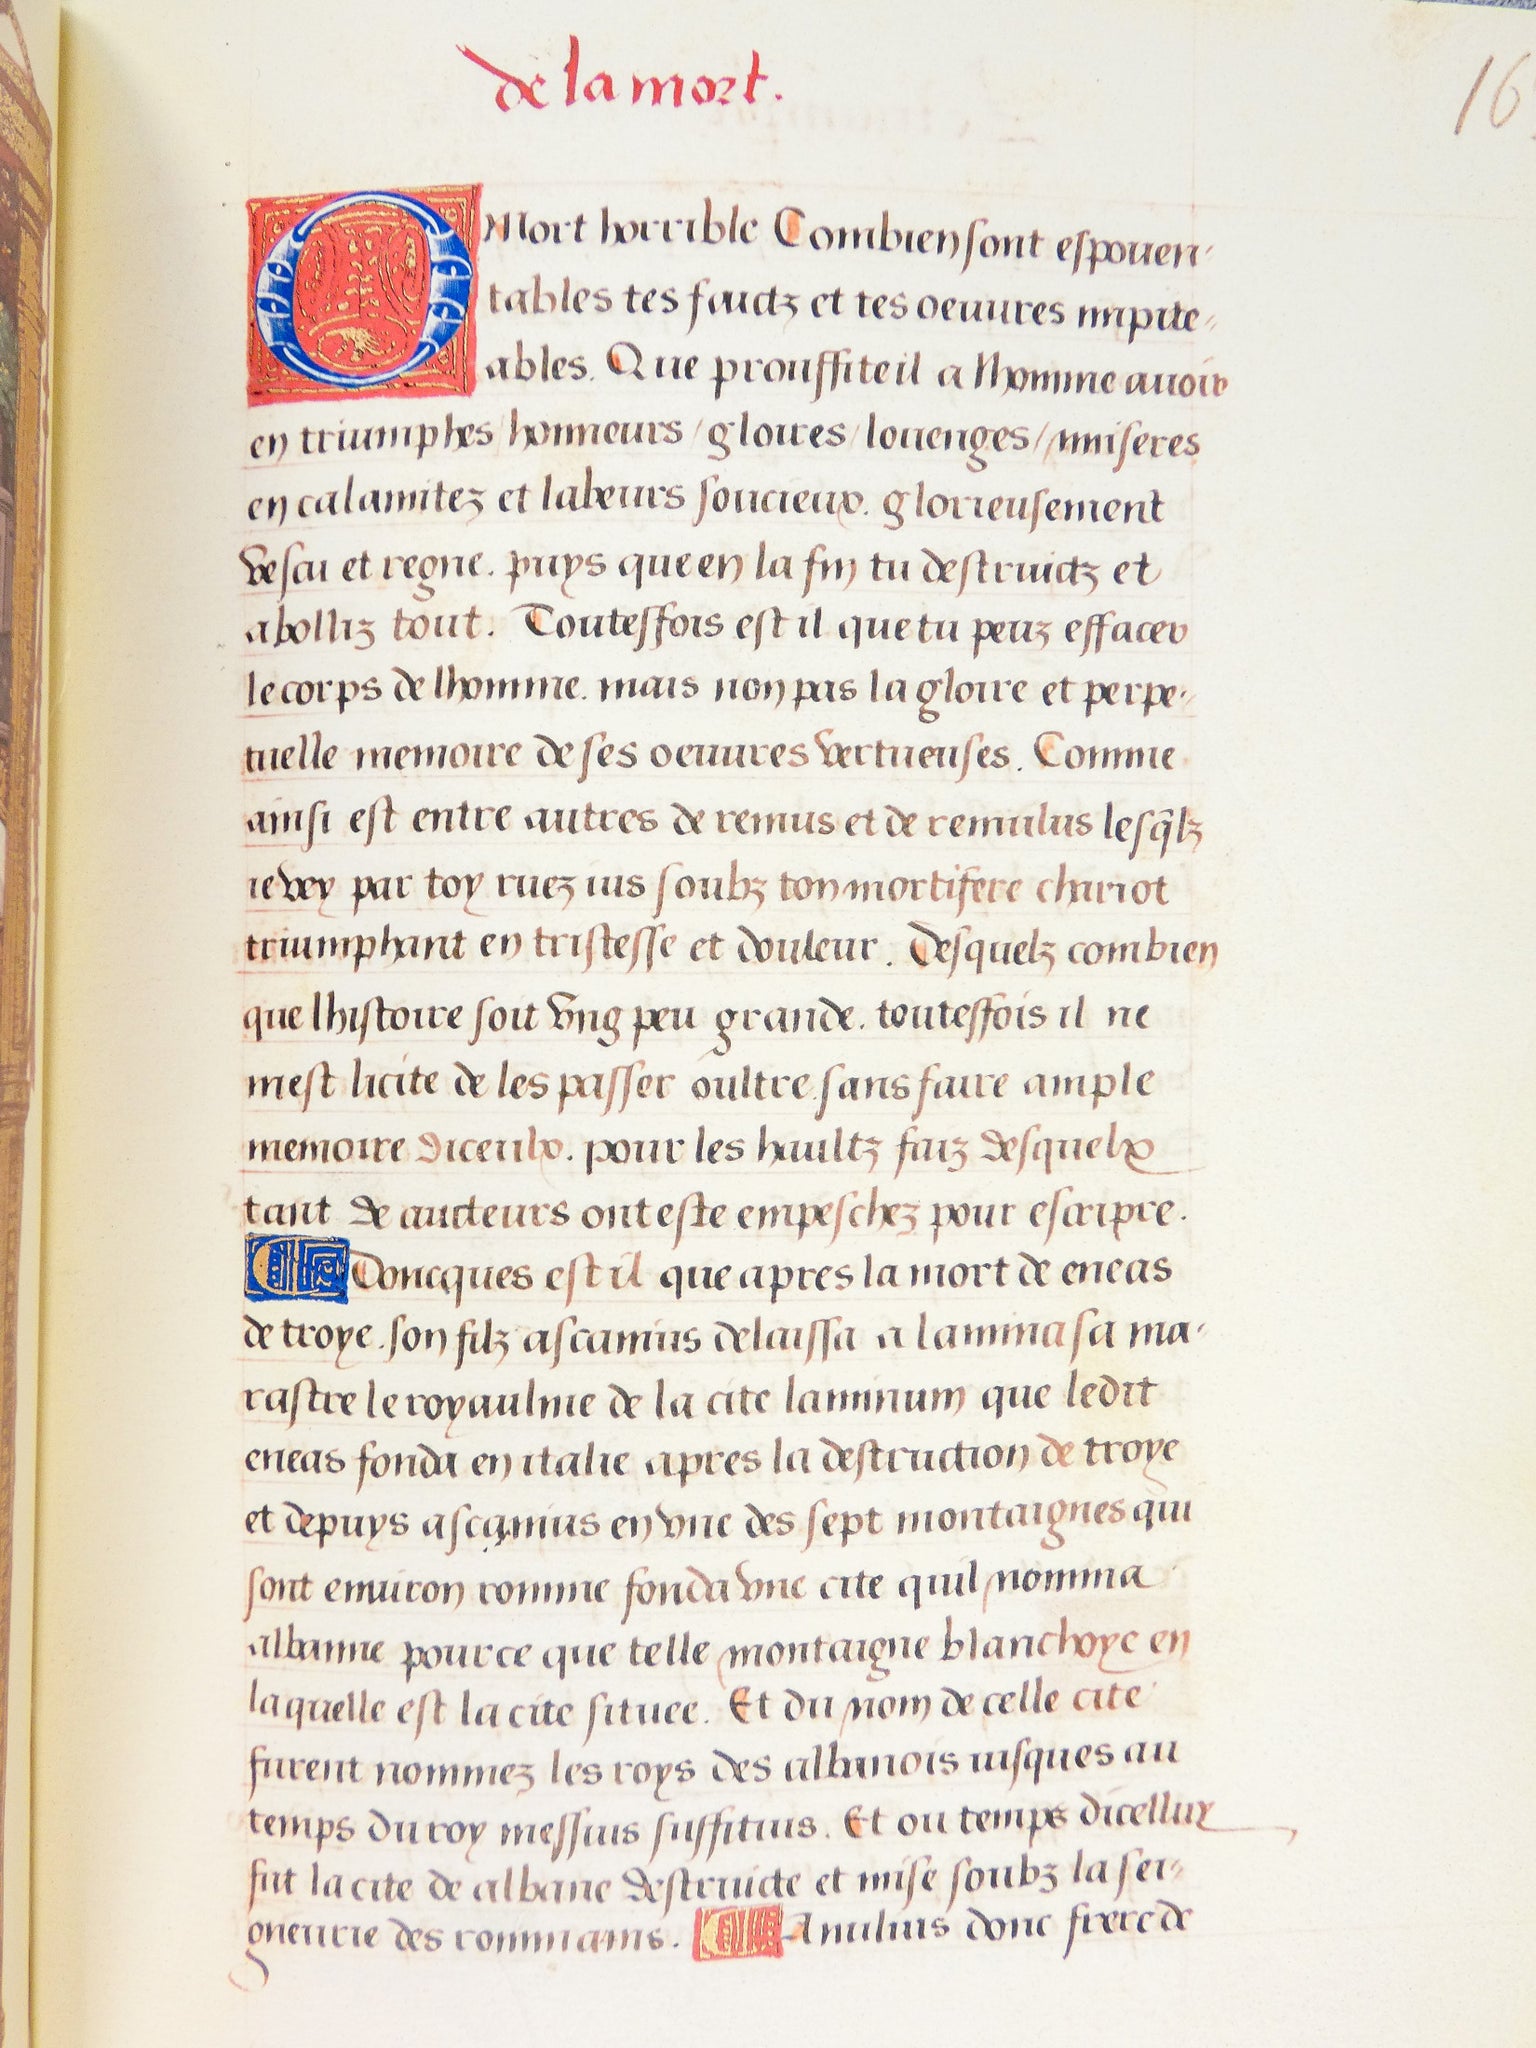 de la mort.
16
O Mort horrible Combien sont espouen-
tables tes faictz et tes oeuures impite-
ables. Que prouffite il a lhomme auoir
en triumphes / honneurs / gloires / louenges / miseres
en calamitez et labeurs soucieux. glorieusement
vescu et regne. puys que en la fin tu destruictz et
abolliz tout. Touteffois est il que tu peuz effacer
le corps de lhomme. mais non pas la gloire et perpe-
tuelle memoire de ses oeuures vertueuses. Comme
ainsi est entre autres de remus et de remulus lesq̃lz
ie vey par toy ruez ius soubz ton mortifere chariot
triumphant en tristesse et douleur. Desquelz combien
que lhistoire soit vng peu grande. touteffois il ne
mest licite de les passer oultre. sans faire ample
memoire diceulx. pour les haultz faiz desquelx
tant de aucteurs ont este empeschez pour escripre.
Doncques est il que apres la mort de eneas
de troye. son filz ascanius delaissa a lauinia sa ma-
rastre le royaulme de la cite lauinium que ledit
eneas fonda en italie apres la destruction de troye
et depuys ascanius en vne des sept montaignes qui
sont enuiron romme fonda vne cite quil nomma
albanne pource que telle montaigne blanchoye en
laquelle est la cite situee. Et du nom de celle cite
furent nommez les roys des albanois iusques au
temps du roy messius suffitius. Et ou temps dicelluy
fut la cite de albane destruicte et mise soubz la sei-
gneurie des rommains. Amulius donc frere de